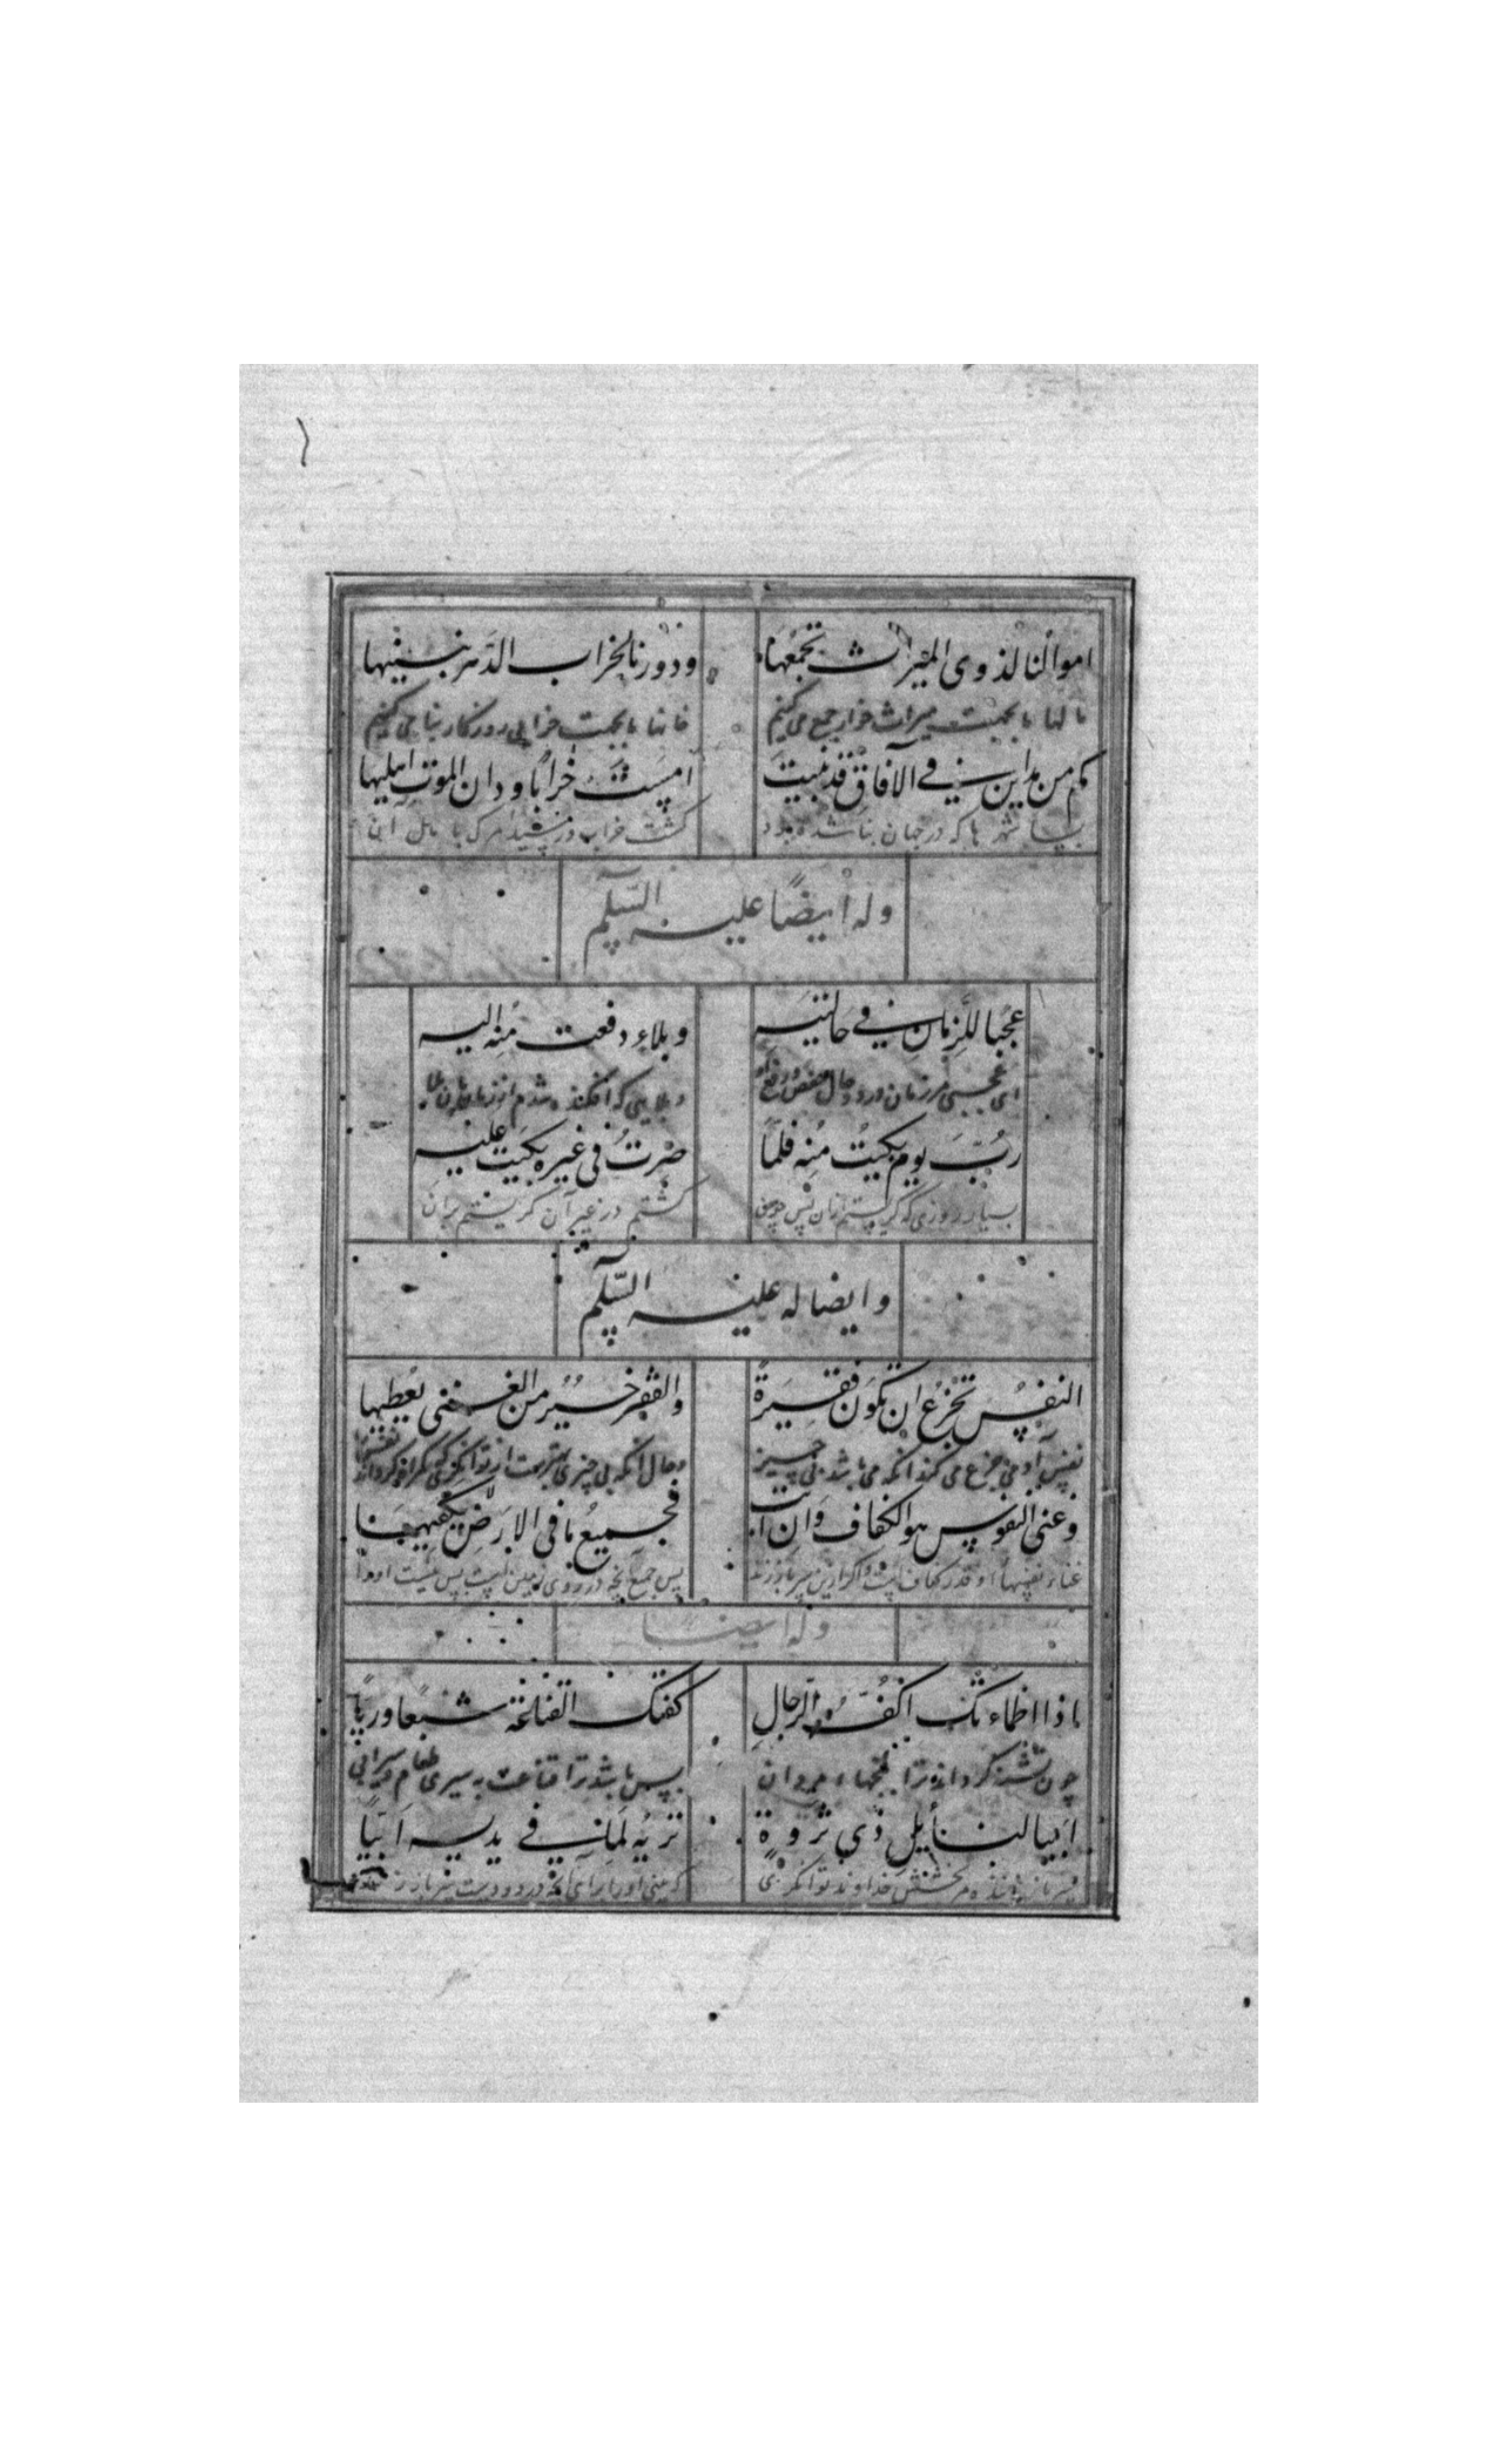 اموالنا لذوی المیراث نجمعها ودورنا لخراب الدهر نبنیها
مالها ما بجهت میراث خوار جمع می کنیم خانها ما بجهت خرابی روزکار بنا می کنیم
کم من مداین فی الآفاق قد بنیت امست خرابا ودان الموت اهلیها
بسا شهر ها که در جهان بنا شده بود کشت خراب و مرک با اهل آن
وله ایضًا علیه السّلم
عجبا للزمان فی حالتیه وبلاء دفعت منه الیه
ای عجبی مر زمان در دو حال وبلایی که افکنده شدم از زمان
ربّ یوم بکیتُ منه فلمّا صرتُ فی غیره بکیت علیه
بسیار روزی که کریستم از آن پس چون کشتم در غیر آن کریستم بران
وایضا له علیه السّلم
النفس تجزع ان تکون فقیرة والفقر خیر من الغنی یطغیها
نفس آدمی جزع می کند انکه می باشد بی چیز وحال انکه بی چیزی بهترست از توانکری که
وغنی النفوس هو الکفاف وان ابت فجمیع ما فی الارض لا یکفیها
غناء نفسها او قدر کفاف است واکر ازین سر باز زند پس جمیع آنچه در روی زمین است بس نیست اورا
وله ایضا
اذا اظماءتک اکفّ الرجال کفتک القناعة شبعا وریّا
چون تشنه کرداند ترا مردان بس باشد ترا قناعت به سیری طعام وسیرابی
ابیا لنایل ذی ثروة تریه لما فی یدیه ابیّا
بخشش خداوند توانکری که بینی اورا برای آنچه در دو دست